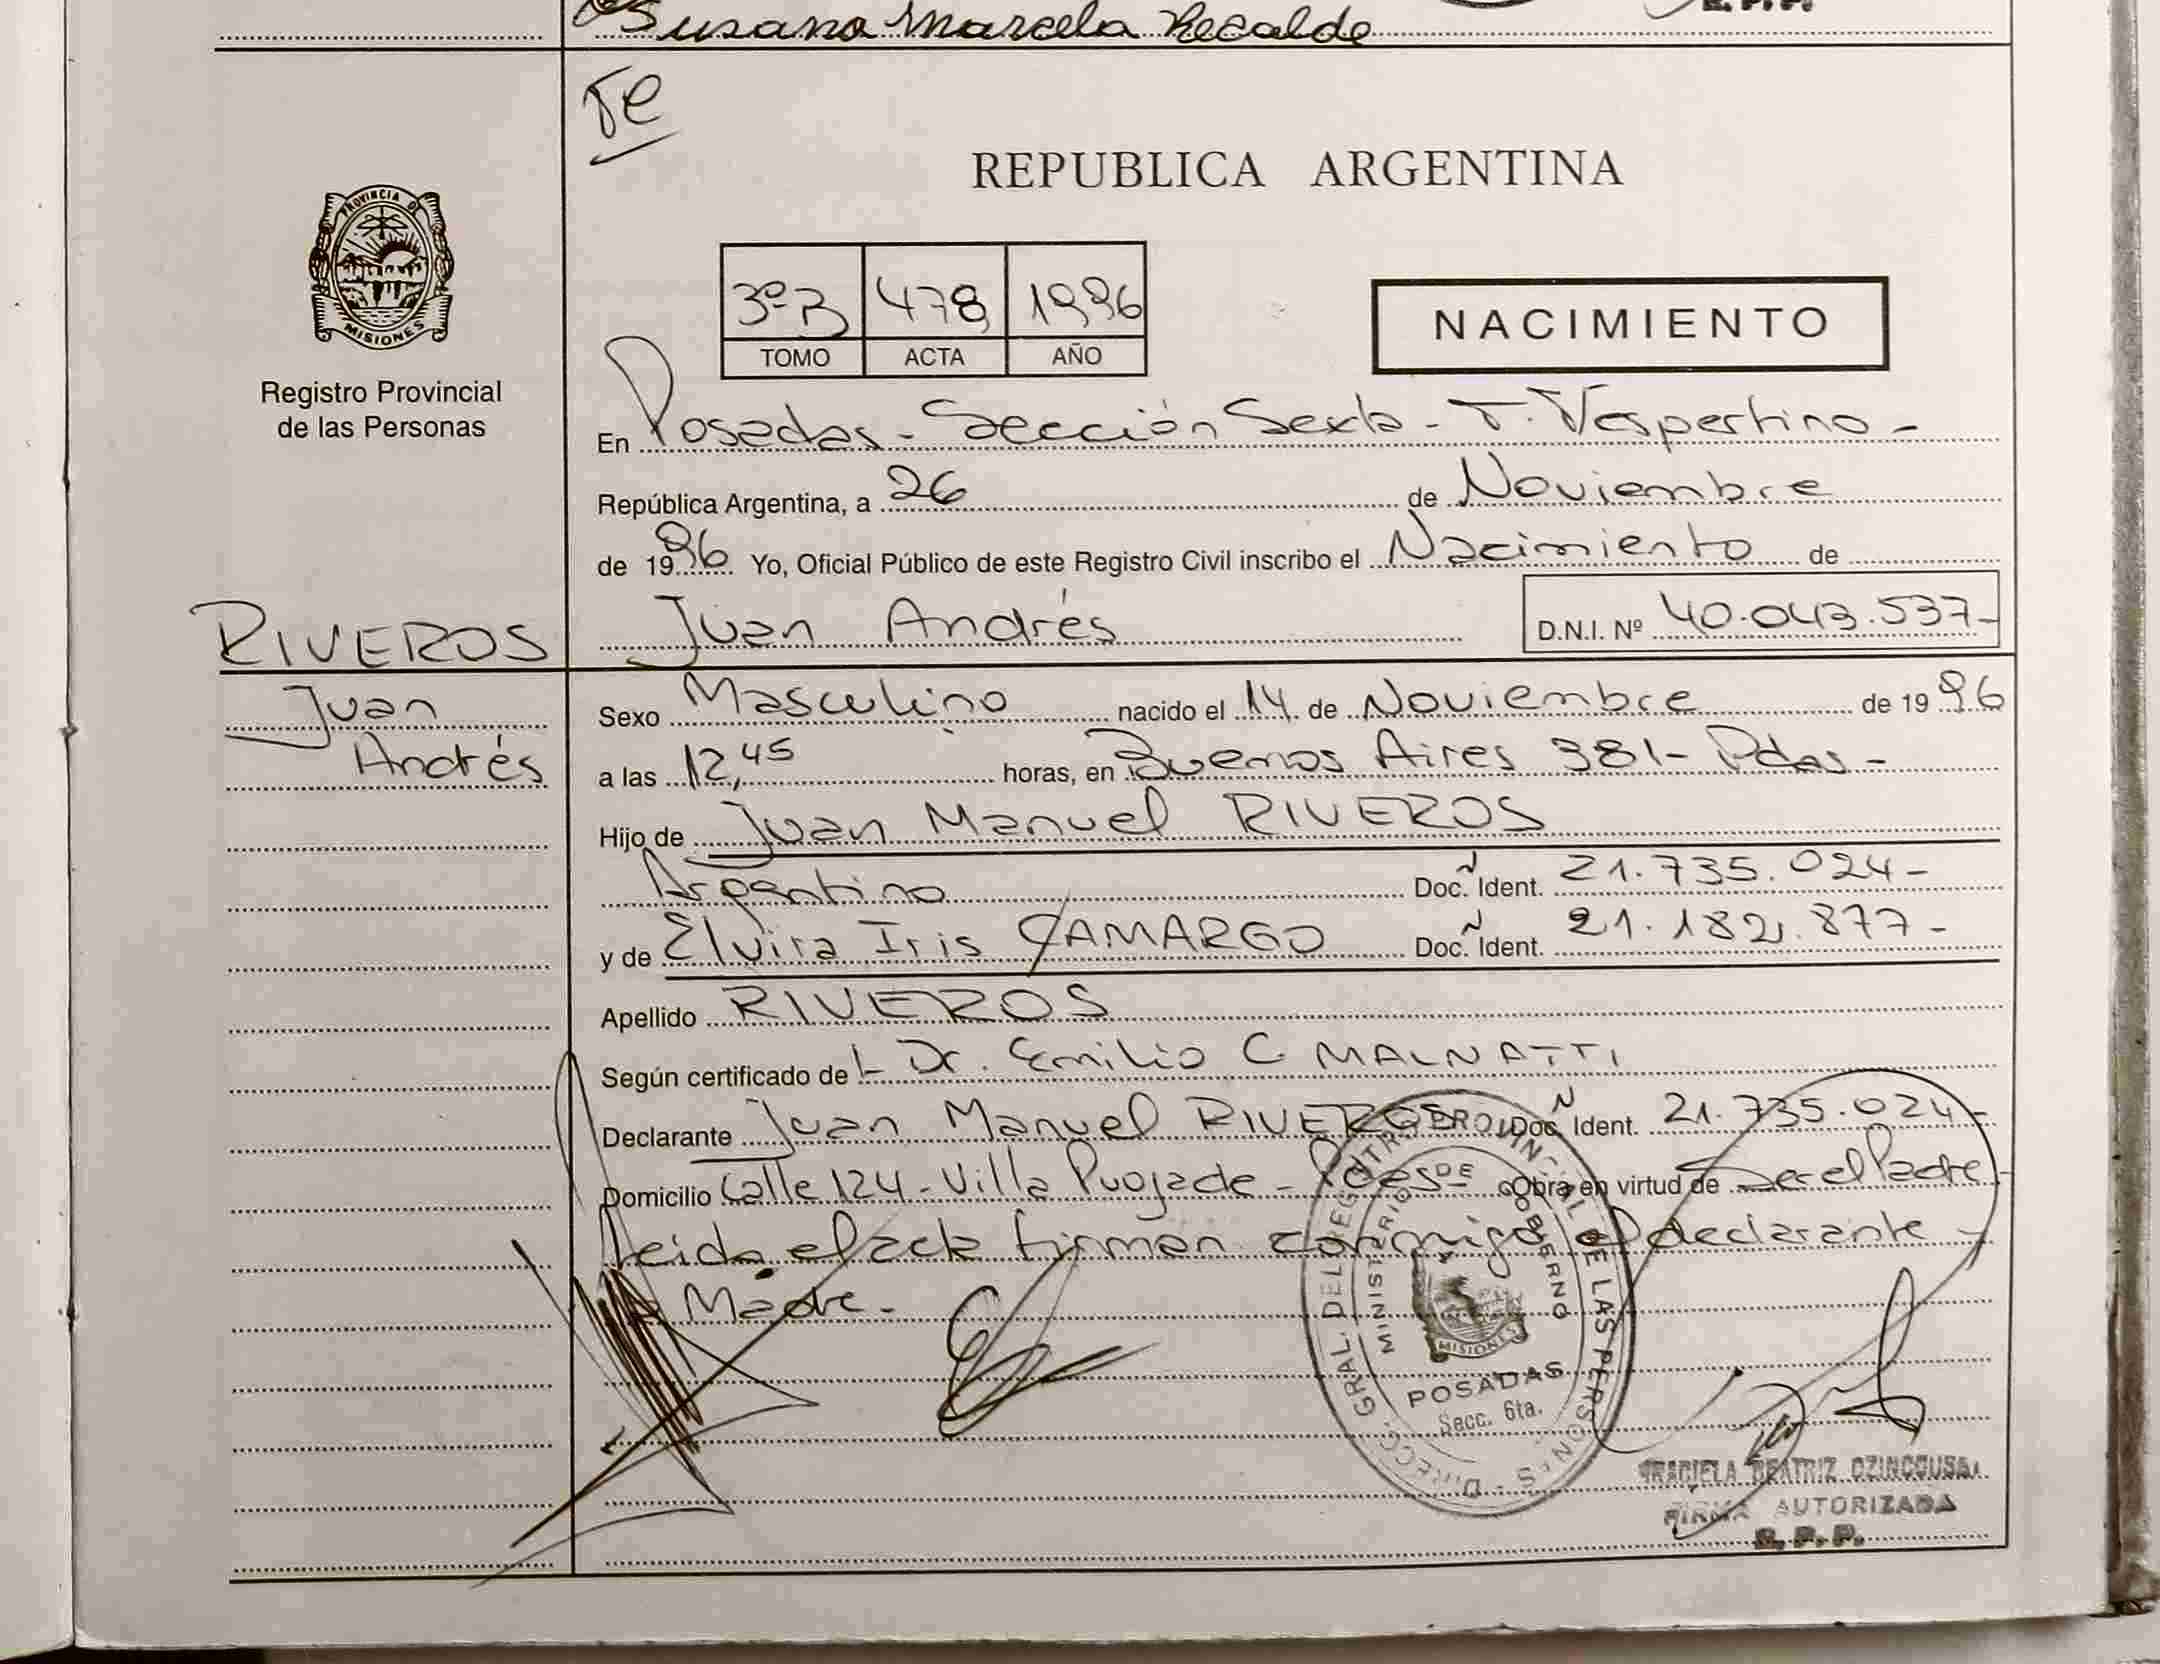 Susana Marcela Recalde
Te
REPUBLICA ARGENTINA
PROVINCIA DE
MISIONES
Registro Provincial
de las Personas
3º B 478 1996
TOMO ACTA AÑO
NACIMIENTO
En Posadas - Sección Sexta - T. Vespertino -
República Argentina, a 26 de Noviembre
de 1996 Yo, Oficial Público de este Registro Civil inscribo el Nacimiento de
RIVEROS
Juan Andrés D.N.I. Nº 40.043.537-
Juan
Andrés
Sexo Masculino nacido el 14 de Noviembre de 1996
a las 12,45 horas, en Buenos Aires 381- Pdas -
Hijo de Juan Manuel RIVEROS
Argentino Doc. Ident. 21.735.024-
y de Elvira Iris CAMARGO Doc. Ident. 21.182.877-
Apellido RIVEROS
Según certificado de l- Dr. Emilio C MALNATTI
Declarante Juan Manuel RIVEROS Doc. Ident. 21.735.024-
Domicilio Calle 124 - Villa Puojade - Pdas - Obra en virtud de Ser el Padre -
Leida el acta firman conmigo el declarante -
Madre -
DIRECC. GRAL. DEL REGISTRO PROVINCIAL DE LAS PERSONAS
MINISTERIO DE GOBIERNO
MISIONES
POSADAS
Secc. 6ta.
GRACIELA BEATRIZ
FIRMA AUTORIZADA
R.P.P.